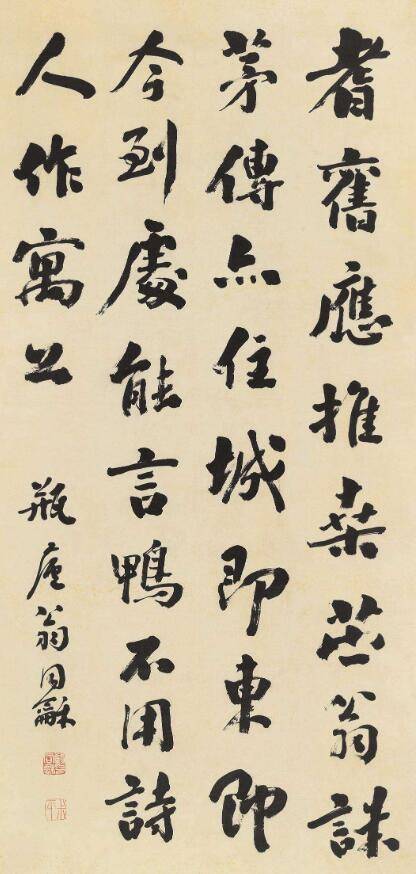 耆舊應推桑苧翁誅
茅傳亦住城即東即
今到處能言鴨不用詩
人作寓公
瓶廬翁同龢